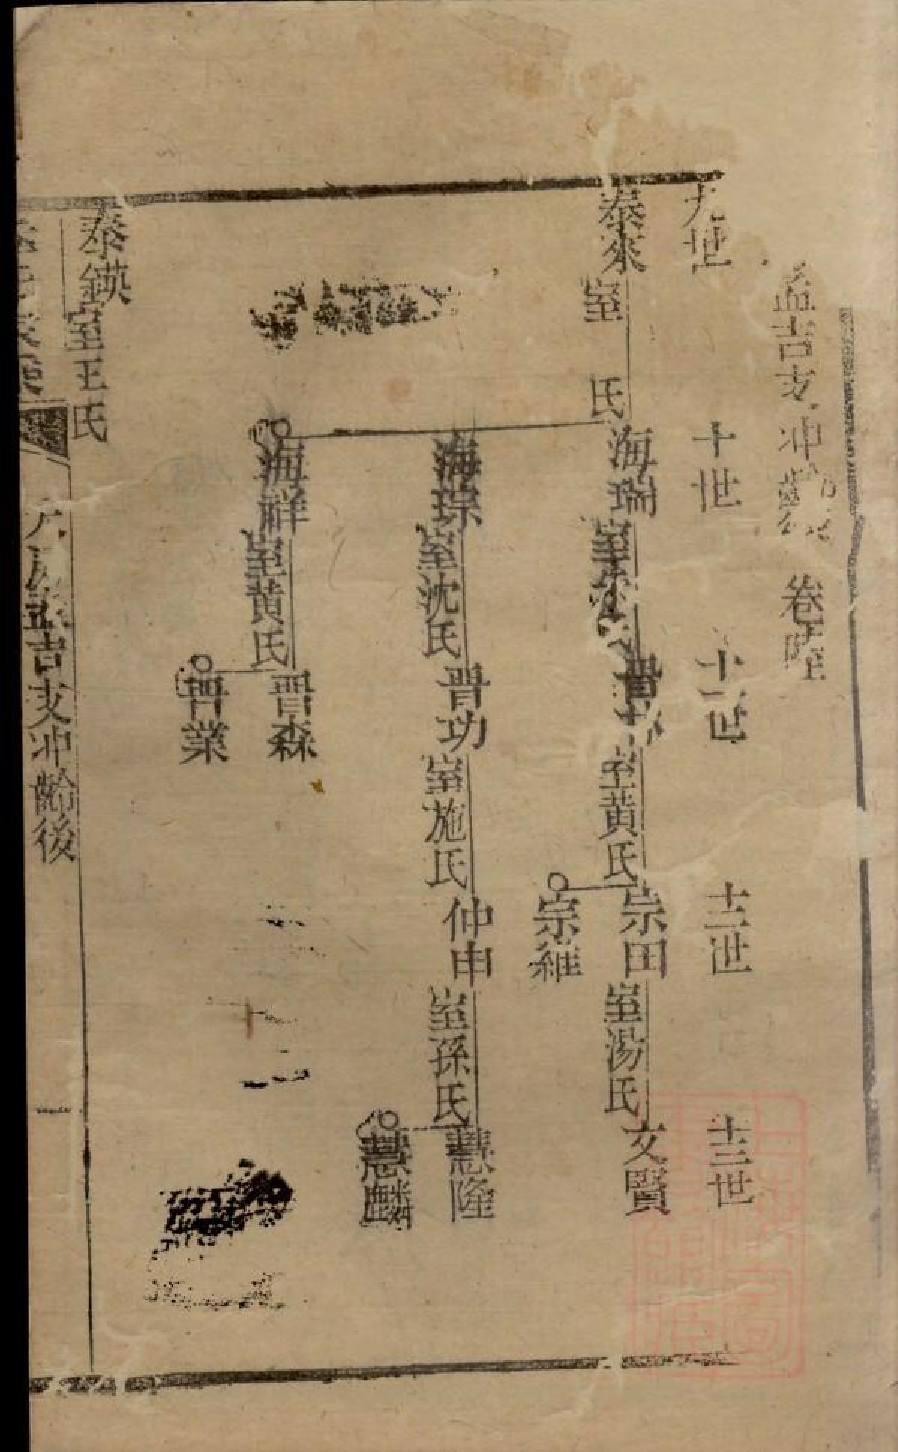 孟吉支冲齡後 卷陸
九世
十世
十一世
十二世
十三世
泰來室 氏
海瑞室
晋 室黄氏
宗田室湯氏
文賢
宗維
海琮室沈氏
晋功室施氏
仲申室孫氏
慧隆
慧麟
海祥室黄氏
晋森
晋業
泰鍈室王氏
孟吉支冲齡後 一